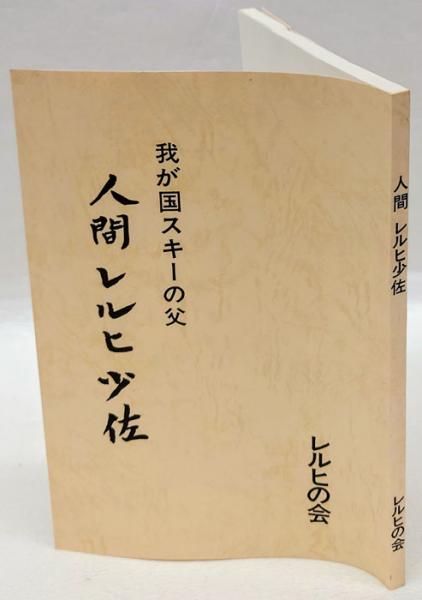 我が国スキーの父
人間レルヒ少佐
レルヒの会
人間 レルヒ少佐
レルヒの会